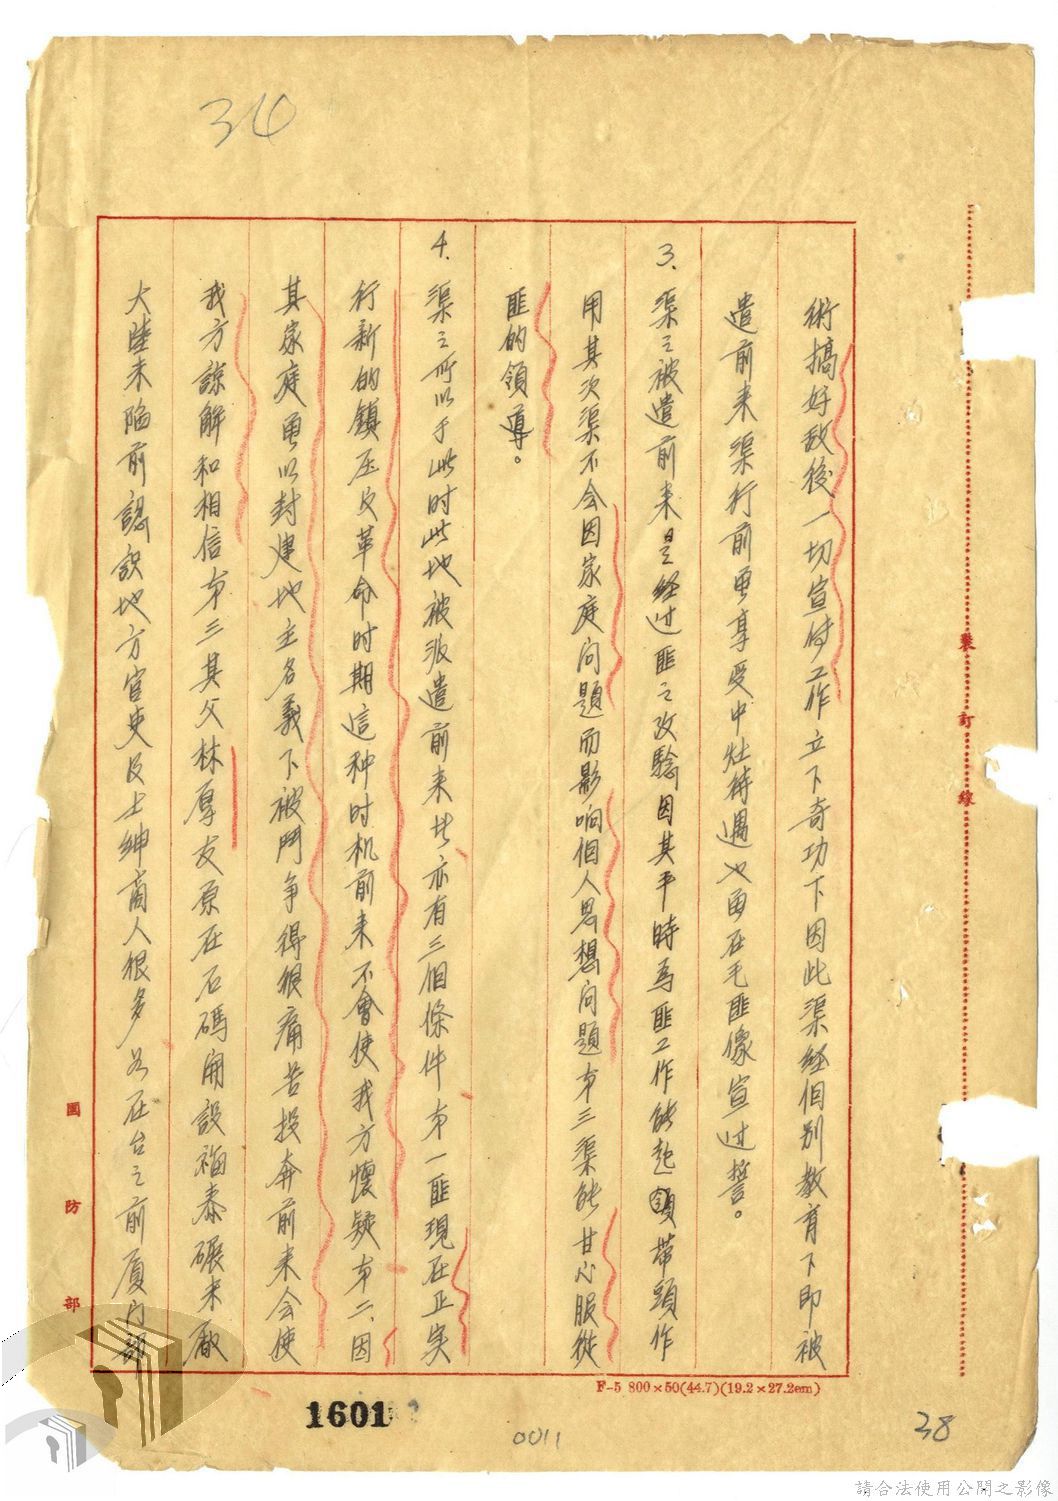 34
術搞好敌後一切宣传工作立下奇功下因此渠经個别教育下即被
遣前来渠行前更享受中灶待遇也曾在毛匪像宣过誓。
3、渠之被遣前来是经过匪之攷驗因其平時為匪工作能起領带頭作
用其次渠不会因家庭问題而影响個人思想问題苐三渠能甘心服從
匪的領導。
4、渠之所以于此时此地被派遣前来共亦有三個條件苐一匪現在正実
行新的鎮压反革命时期這种时机前来不會使我方懷疑苐二、因
其家庭曾以封建地主名義下被鬥争得很痛苦投奔前来会使
我方諒解和相信苐三其父林厚友原在石碼開設福泰碾米廠
大陸未陷前認訳地方官吏及士紳商人很多名在台之前厦门部
裝訂線
國防部
F-5 800×50(44.7)(19.2×27.2em)
1601
0011
38
請合法使用公開之影像